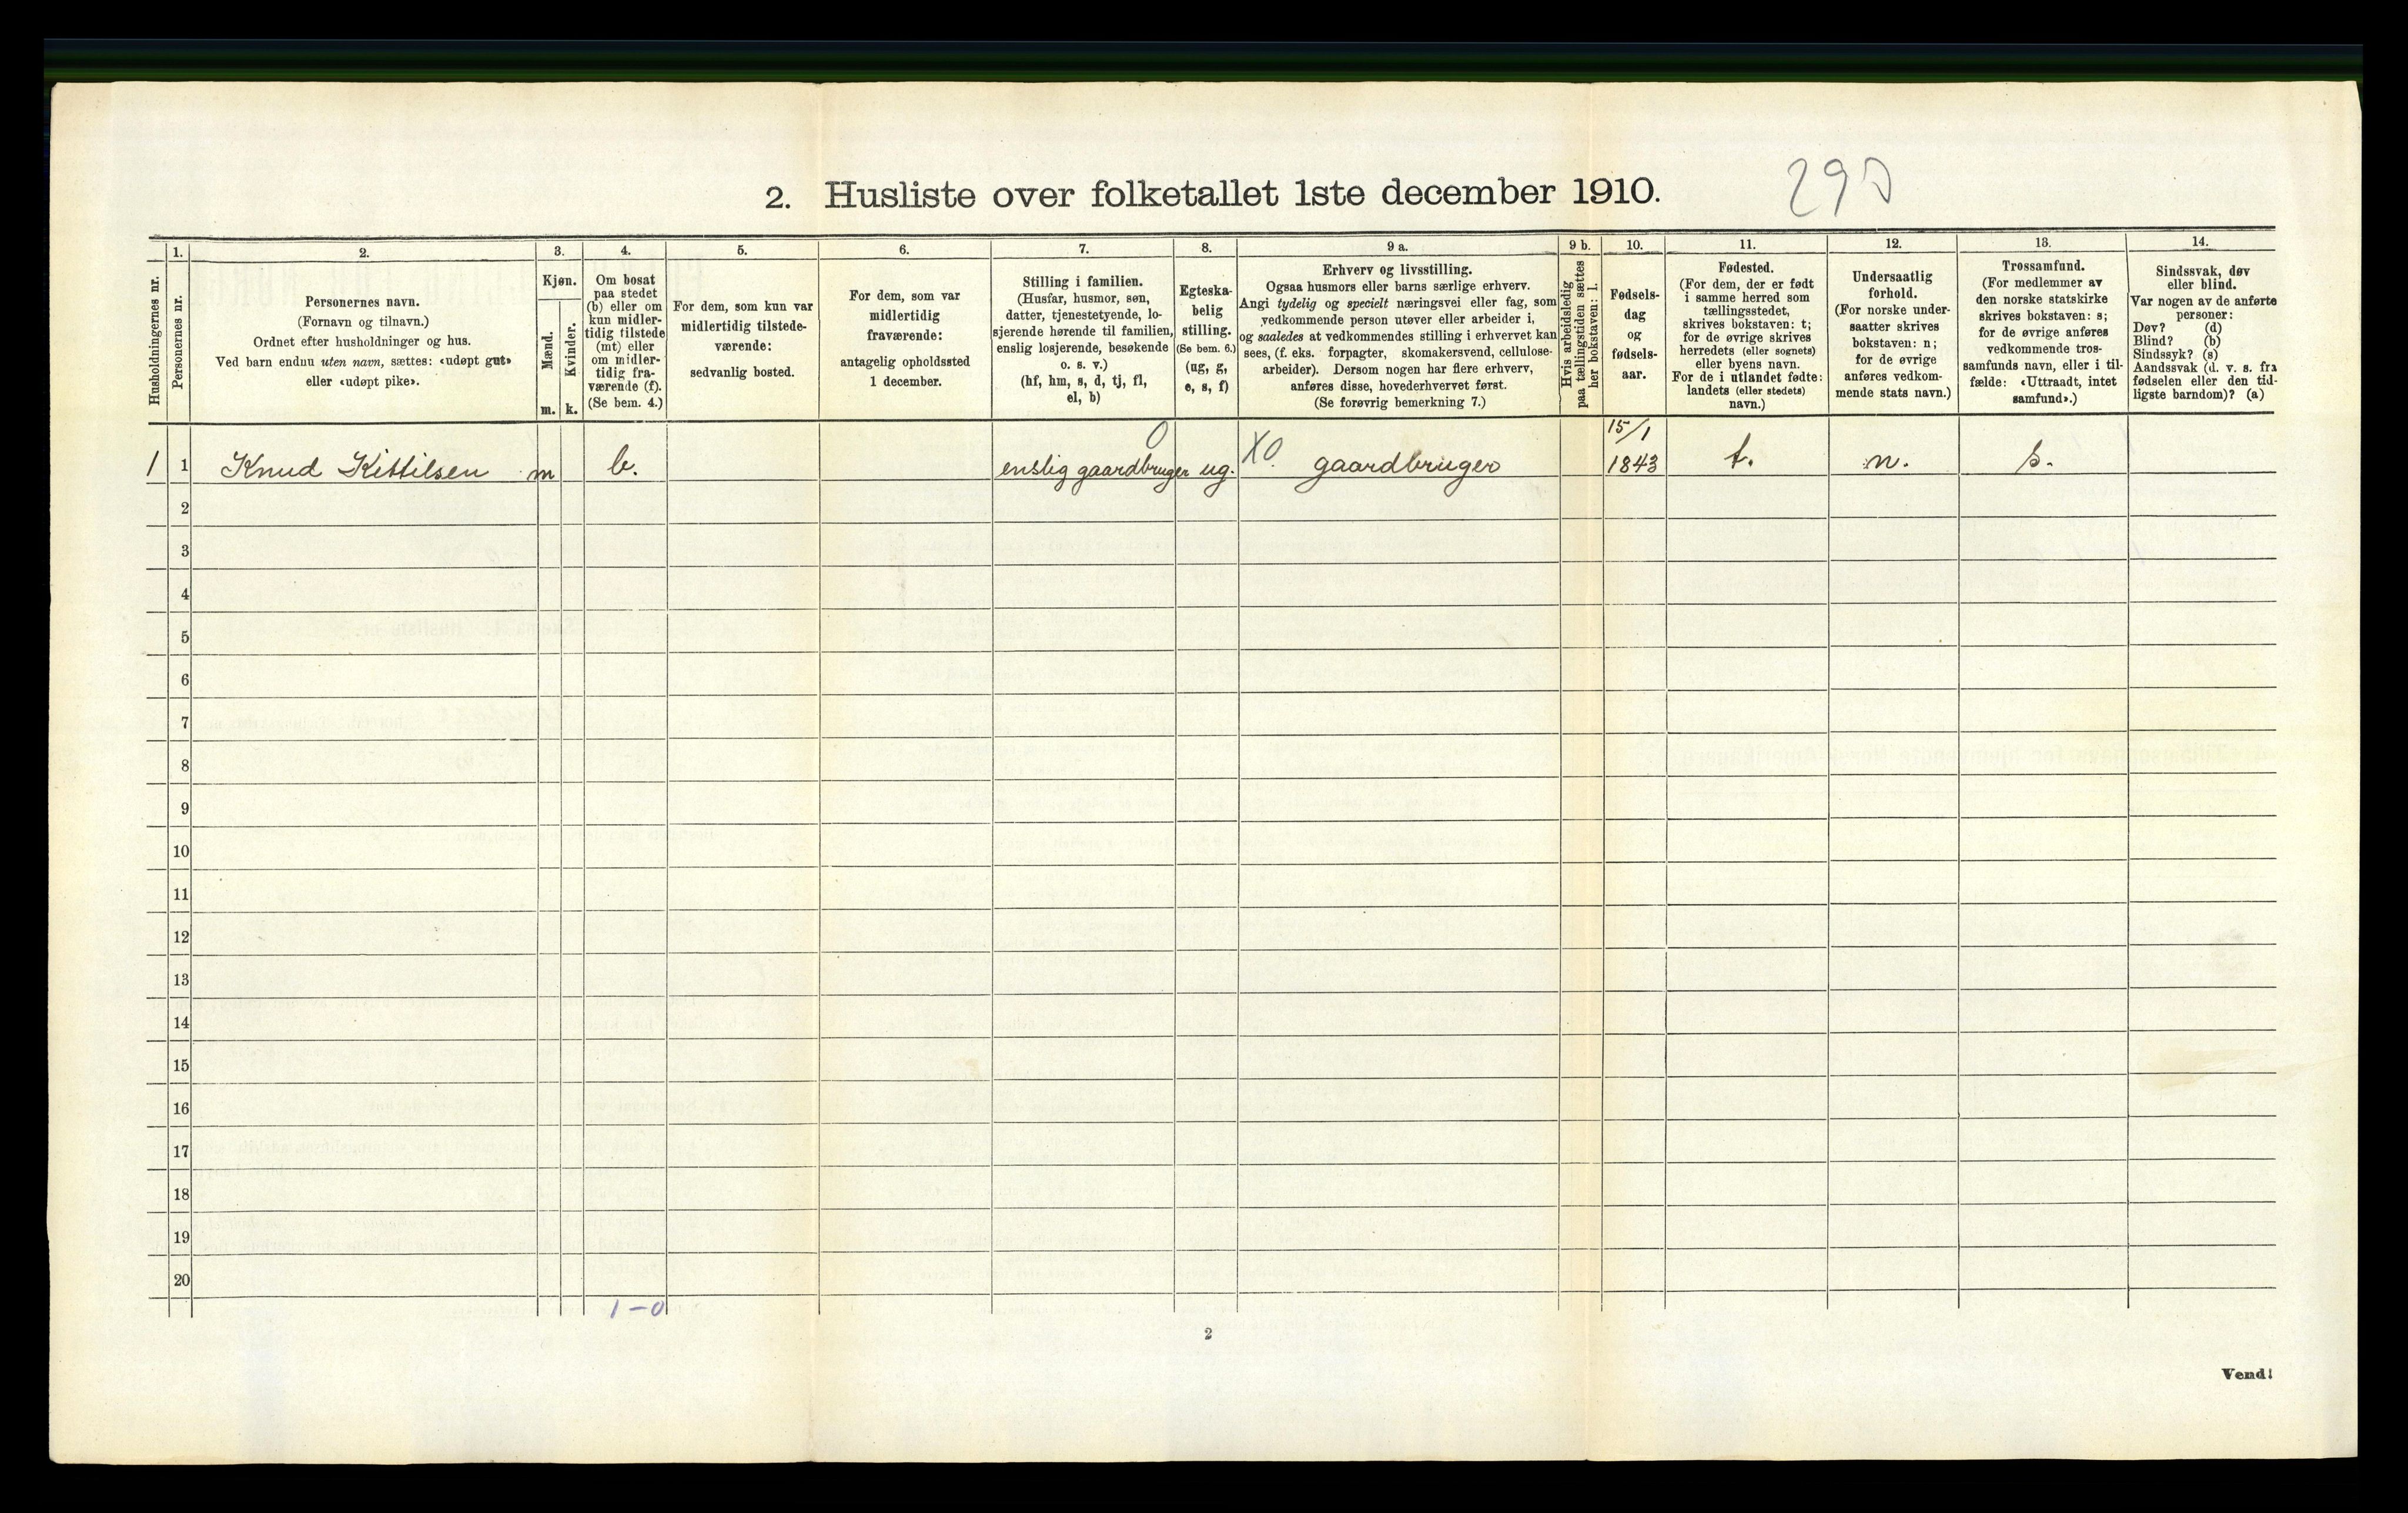 2. Husliste over folketallet 1ste december 1910.
Husholdningernes nr.
1.
Personernes nr.
2.
Personernes navn.
(Fornavn og tilnavn.)
Ordnet efter husholdninger og hus.
Ved barn endnu uten navn, sættes: «udøpt gut»
eller «udøpt pike».
3.
Kjøn.
Mænd.
Kvinder.
m. k.
4.
Om bosat
paa stedet
(b) eller om
kun midler-
tidig tilstede
(mt) eller
om midler-
tidig fra-
værende (f).
(Se bem. 4.)
5.
For dem, som kun var
midlertidig tilstede-
værende:
sedvanlig bosted.
6.
For dem, som var
midlertidig
fraværende:
antagelig opholdssted
1 december.
7.
Stilling i familien.
(Husfar, husmor, søn,
datter, tjenestetyende, lo-
sjerende hørende til familien,
enslig losjerende, besøkende
o. s. v.)
(hf, hm, s, d, tj, fl,
el, b)
8.
Egteska-
belig
stilling.
(Se bem. 6.)
(ug, g,
e, s, f)
9 a.
Erhverv og livsstilling.
Ogsaa husmors eller barns særlige erhverv.
Angi tydelig og specielt næringsvei eller fag, som
vedkommende person utøver eller arbeider i,
og saaledes at vedkommendes stilling i erhvervet kan
sees, (f. eks. forpagter, skomakersvend, cellulose-
arbeider). Dersom nogen har flere erhverv,
anføres disse, hovederhvervet først.
(Se forøvrig bemerkning 7.)
9 b.
Hvis arbeidsledig
paa tællingstiden sættes
her bokstaven: l.
10.
Fødsels-
dag
og
fødsels-
aar.
11.
Fødested.
(For dem, der er født
i samme herred som
tællingsstedet,
skrives bokstaven: t;
for de øvrige skrives
herredets (eller sognets)
eller byens navn.
For de i utlandet fødte:
landets (eller stedets)
navn.)
12.
Undersaatlig
forhold.
(For norske under-
saatter skrives
bokstaven: n;
for de øvrige
anføres vedkom-
mende stats navn.)
13.
Trossamfund.
(For medlemmer av
den norske statskirke
skrives bokstaven: s;
for de øvrige anføres
vedkommende tros-
samfunds navn, eller i til-
fælde: «Uttraadt, intet
samfund».)
14.
Sindssvak, døv
eller blind.
Var nogen av de anførte
personer:
Døv? (d)
Blind? (b)
Sindssyk? (s)
Aandssvak (d. v. s. fra
fødselen eller den tid-
ligste barndom)? (a)
0 15/1
1 1 Knud Kittilsen m b. enslig gaardbruger ug. X0 gaardbruger 1843 t. n. s.
2
3
4
5
6
7
8
9
10
11
12
13
14
15
16
17
18
19
20
1-0
2
Vend!